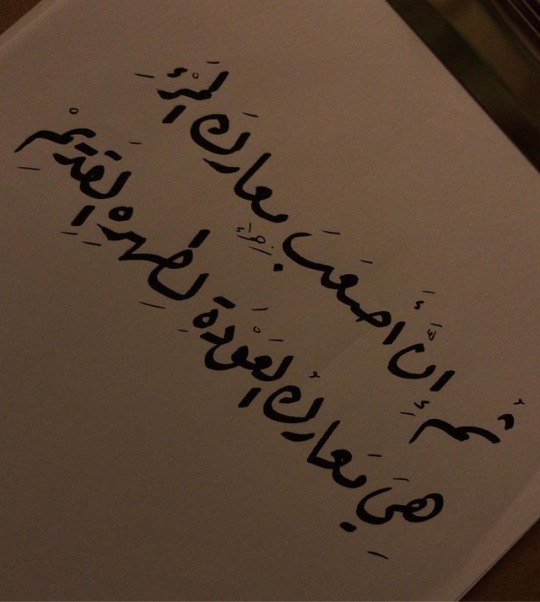 ثُمَّ إِنَّ أَصعَبَ معاركَ المَرْءِ
هِيَ مَعاركُ العَوْدَةِ لِطُهرِهِ القَدِيمْ